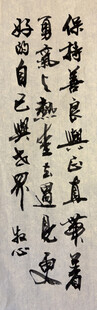 保持善良與正直帶著
勇氣與熱愛去遇見更
好的自己與世界 牧心